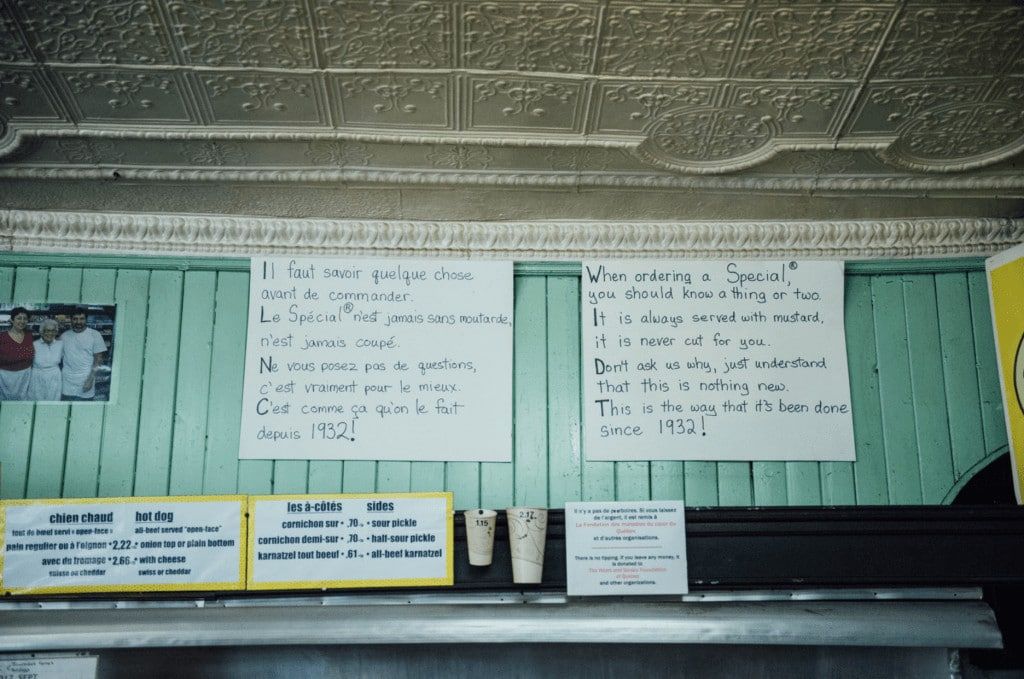 Il faut savoir quelque chose
avant de commander.
Le Spécial® n'est jamais sans moutarde,
n'est jamais coupé.
Ne vous posez pas de questions,
c'est vraiment pour le mieux.
C'est comme ça qu'on le fait
depuis 1932!
When ordering a Special®
you should know a thing or two.
It is always served with mustard,
it is never cut for you.
Don't ask us why, just understand
that this is nothing new.
This is the way that it's been done
since 1932!
chien chaud hot dog
tout du bœuf servi « open-face » all-beef served "open-face"
pain regulier ou à l'oignon • 2,22 • onion top or plain bottom
avec du fromage • 2,66 • with cheese
suisse ou cheddar swiss or cheddar
les à-côtés sides
cornichon sur • ,70 • sour pickle
cornichon demi-sur • ,70 • half-sour pickle
karnatzel tout boeuf • ,61 • all-beef karnatzel
1.15
2.17
Il n'y a pas de pourboires. Si vous laissez
de l'argent, il est remis à
La Fondation des maladies du cœur du
Québec
et d'autres organisations.
There is no tipping. If you leave any money, it
is donated to
The Heart and Stroke Foundation
of Quebec
and other organizations.
SEPT